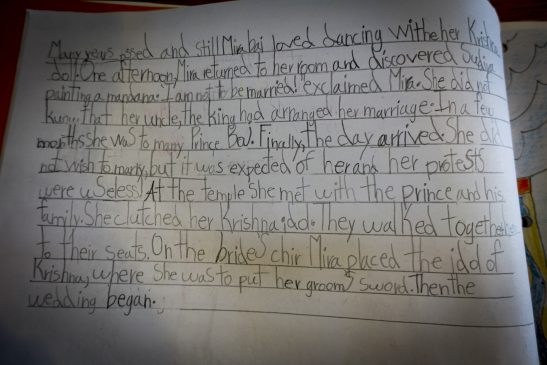 Many years pssed and still Mirabai loved dancing withe her Krishna
doll. One afternoon, Mira returned to her room and discovered
painting a mandana. "I am not to be married!" exclaimed Mira. She did not
Kunw That her uncle, the king had arranged her marriage. In a few
months she was to marry Prince Boj. Finally, The day arrived. She did
not wish to marry, but it was expected of her and her protests
were useless! At the temple she met with the prince and his
family. She clutched her Krishna idao. They walked together
to their seats. On the brides chir Mira placed the idd of
Krishna, where she was to put her groom's sword. Then the
wedding began.